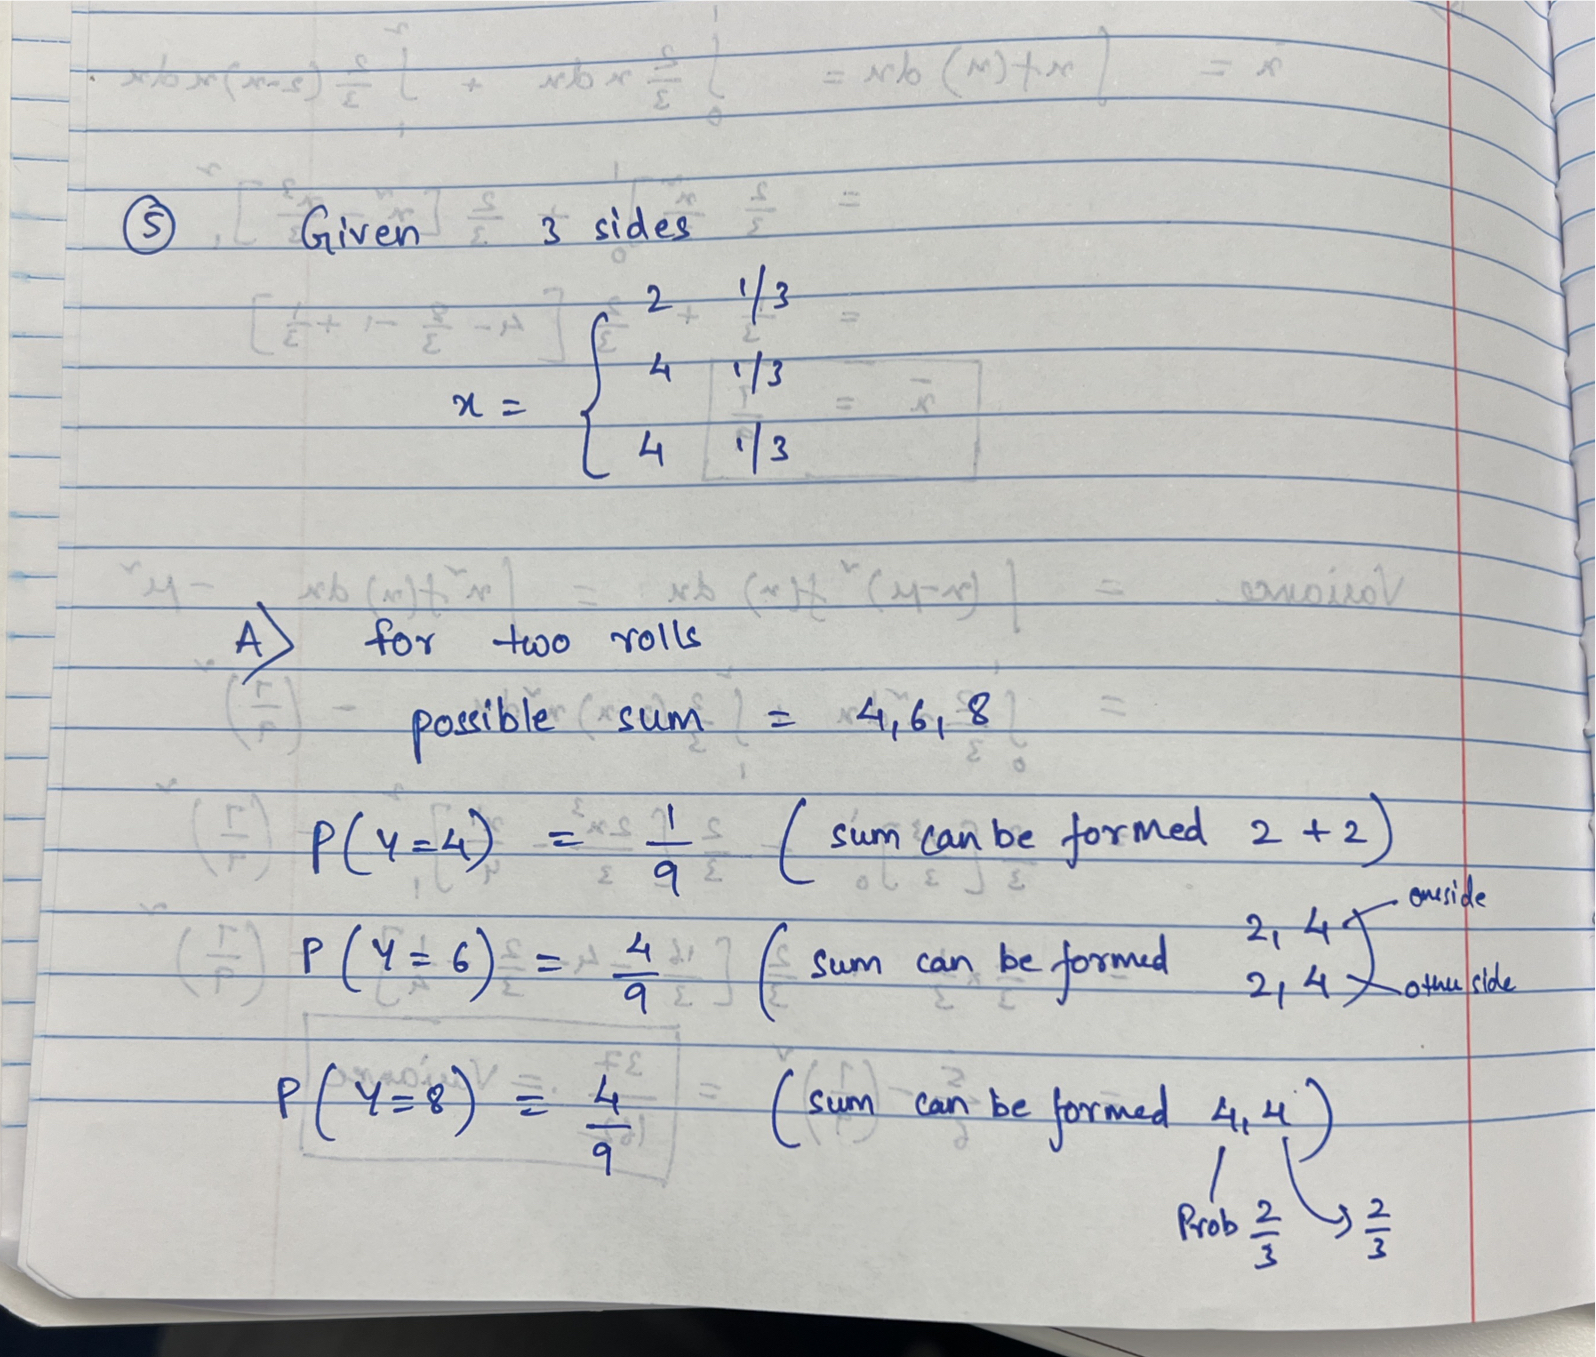 ⑤ Given 3 sides
2 1/3
4 1/3
x = {
4 1/3
A) for two rolls
possible sum = 4, 6, 8
P(Y=4) = 1/9 ( sum can be formed 2 + 2 )
oneside
P(Y=6) = 4/9 ( sum can be formed 2, 4
2, 4 other side
P(Y=8) = 4/9 ( sum can be formed 4, 4 )
Prob 2/3 → 2/3